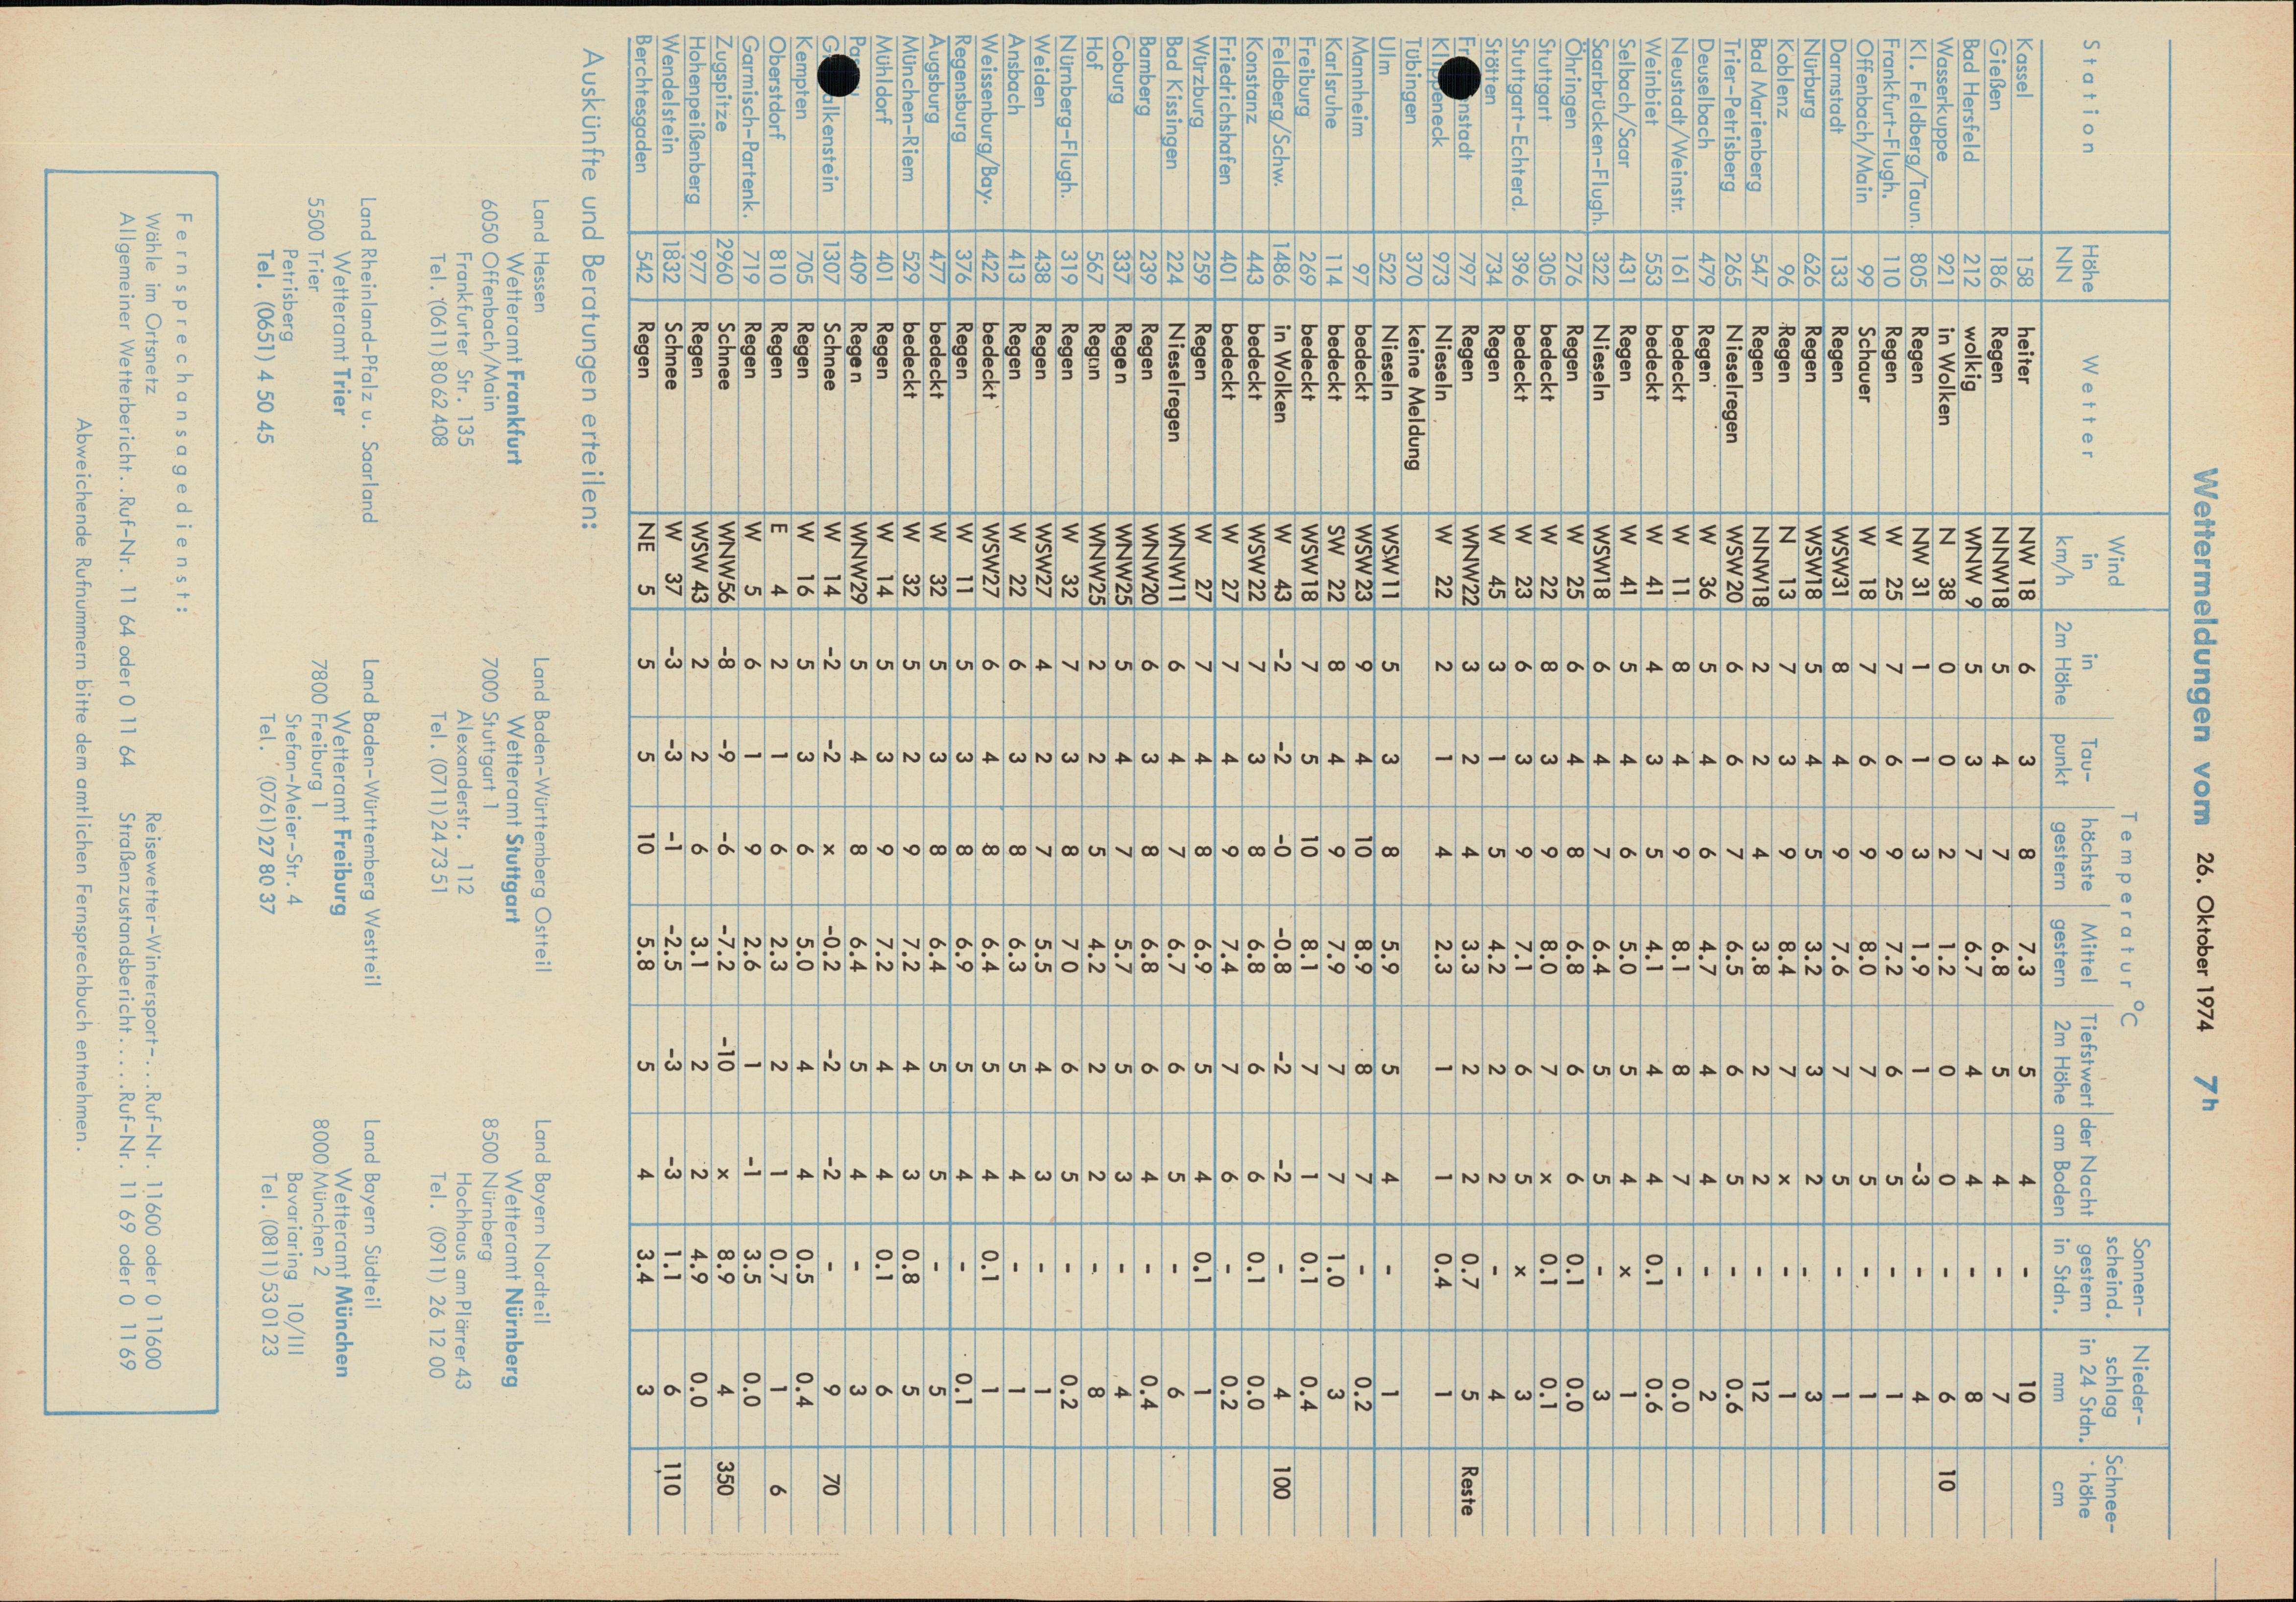 Wettermeldungen vom 26. Oktober 1974 7h
Station Höhe NN Wetter Wind in km/h Temperatur °C in 2m Höhe Tau-punkt höchste gestern Mittel gestern Tiefstwert der Nacht 2m Höhe am Boden Sonnen-scheind. gestern in Stdn. Nieder-schlag in 24 Stdn. mm Schnee-höhe cm
Kassel 158 heiter NW 18 6 3 8 7.3 5 4 - 10
Gießen 186 Regen NNW18 5 4 7 6.8 5 4 - 7
Bad Hersfeld 212 wolkig WNW 9 5 3 7 6.7 4 4 - 8
Wasserkuppe 921 in Wolken N 38 0 0 2 1.2 0 0 - 6 10
Kl. Feldberg/Taun. 805 Regen NW 31 1 1 3 1.9 1 -3 - 4
Frankfurt-Flugh. 110 Regen W 25 7 6 9 7.2 6 5 - 1
Offenbach/Main 99 Schauer W 18 7 6 9 8.0 7 5 - 1
Darmstadt 133 Regen WSW31 8 4 9 7.6 7 5 - 1
Nürburg 626 Regen WSW18 5 4 5 3.2 3 2 - 3
Koblenz 96 Regen N 13 7 3 9 8.4 7 x - 1
Bad Marienberg 547 Regen NNW18 2 2 4 3.8 2 2 - 12
Trier-Petrisberg 265 Nieselregen WSW 20 6 6 7 6.5 6 5 - 0.6
Deuselbach 479 Regen W 36 5 4 6 4.7 4 4 - 2
Neustadt/Weinstr. 161 bedeckt W 11 8 4 9 8.1 8 7 - 0.0
Weinbiet 553 bedeckt W 41 4 3 5 4.1 4 4 0.1 0.6
Selbach/Saar 431 Regen W 41 5 4 6 5.0 5 4 x 1
Saarbrücken-Flugh. 322 Nieseln WSW18 6 4 7 6.4 5 5 - 3
Öhringen 276 Regen W 25 6 4 8 6.8 6 6 0.1 0.0
Stuttgart 305 bedeckt W 22 8 3 9 8.0 7 x 0.1 0.1
Stuttgart-Echterd. 396 bedeckt W 23 6 3 9 7.1 6 5 x 3
Stötten 734 Regen W 45 3 1 5 4.2 2 2 - 4
Fr nstadt 797 Regen WNW22 3 2 4 3.3 2 2 0.7 5 Reste
Klippeneck 973 Nieseln W 22 2 1 4 2.3 1 1 0.4 1
Tübingen 370 keine Meldung
Ulm 522 Nieseln WSW 11 5 3 8 5.9 5 4 - 1
Mannheim 97 bedeckt WSW 23 9 4 10 8.9 8 7 - 0.2
Karlsruhe 114 bedeckt SW 22 8 4 9 7.9 7 7 1.0 3
Freiburg 269 bedeckt WSW18 7 5 10 8.1 7 1 0.1 0.4
Feldberg/Schw. 1486 in Wolken W 43 -2 -2 -0 -0.8 -2 -2 - 4 100
Konstanz 443 bedeckt WSW 22 7 3 8 6.8 6 6 0.1 0.0
Friedrichshafen 401 bedeckt W 27 7 4 9 7.4 7 6 - 0.2
Würzburg 259 Regen W 27 7 4 8 6.9 5 4 0.1 1
Bad Kissingen 224 Nieselregen WNW11 6 4 7 6.7 6 5 - 6
Bamberg 239 Regen WNW20 6 3 8 6.8 6 4 - 0.4
Coburg 337 Regen WNW25 5 4 7 5.7 5 3 - 4
Hof 567 Regen WNW25 2 2 5 4.2 2 2 - 8
Nürnberg-Flugh. 319 Regen W 32 7 3 8 7.0 6 5 - 0.2
Weiden 438 Regen WSW27 4 2 7 5.5 4 3 - 1
Ansbach 413 Regen W 22 6 3 8 6.3 5 4 - 1
Weissenburg/Bay. 422 bedeckt WSW27 6 4 8 6.4 5 4 0.1 1
Regensburg 376 Regen W 11 5 3 8 6.9 5 4 - 0.1
Augsburg 477 bedeckt W 32 5 3 8 6.4 5 5 - 5
München-Riem 529 bedeckt W 32 5 2 9 7.2 4 3 0.8 5
Mühldorf 401 Regen W 14 5 3 9 7.2 4 4 0.1 6
Pa 409 Regen WNW29 5 4 8 6.4 5 4 - 3
G alkenstein 1307 Schnee W 14 -2 -2 x -0.2 -2 -2 - 9 70
Kempten 705 Regen W 16 5 3 6 5.0 4 4 0.5 0.4
Oberstdorf 810 Regen E 4 2 1 6 2.3 2 1 0.7 1 6
Garmisch-Partenk. 719 Regen W 5 6 1 9 2.6 1 -1 3.5 0.0
Zugspitze 2960 Schnee WNW56 -8 -9 -6 -7.2 -10 x 8.9 4 350
Hohenpeißenberg 977 Regen WSW 43 2 2 6 3.1 2 2 4.9 0.0
Wendelstein 1832 Schnee W 37 -3 -3 -1 -2.5 -3 -3 1.1 6 110
Berchtesgaden 542 Regen NE 5 5 5 10 5.8 5 4 3.4 3
Auskünfte und Beratungen erteilen:
Land Hessen
Wetteramt Frankfurt
6050 Offenbach/Main
Frankfurter Str. 135
Tel. (0611) 80 62 408
Land Baden-Württemberg Ostteil
Wetteramt Stuttgart
7000 Stuttgart 1
Alexanderstr. 112
Tel. (0711) 24 73 51
Land Bayern Nordteil
Wetteramt Nürnberg
8500 Nürnberg
Hochhaus am Plärrer 43
Tel. (0911) 26 12 00
Land Rheinland-Pfalz u. Saarland
Wetteramt Trier
5500 Trier
Petrisberg
Tel. (0651) 4 50 45
Land Baden-Württemberg Westteil
Wetteramt Freiburg
7800 Freiburg 1
Stefan-Meier-Str. 4
Tel. (0761) 27 80 37
Land Bayern Südteil
Wetteramt München
8000 München 2
Bavariaring 10/III
Tel. (0811) 53 01 23
Fernsprechansagedienst:
Wähle im Ortsnetz Reisewetter-Wintersport-...Ruf-Nr. 11600 oder 0 11600
Allgemeiner Wetterbericht..Ruf-Nr. 11 64 oder 0 11 64 Straßenzustandsbericht.....Ruf-Nr. 11 69 oder 0 11 69
Abweichende Rufnummern bitte dem amtlichen Fernsprechbuch entnehmen.